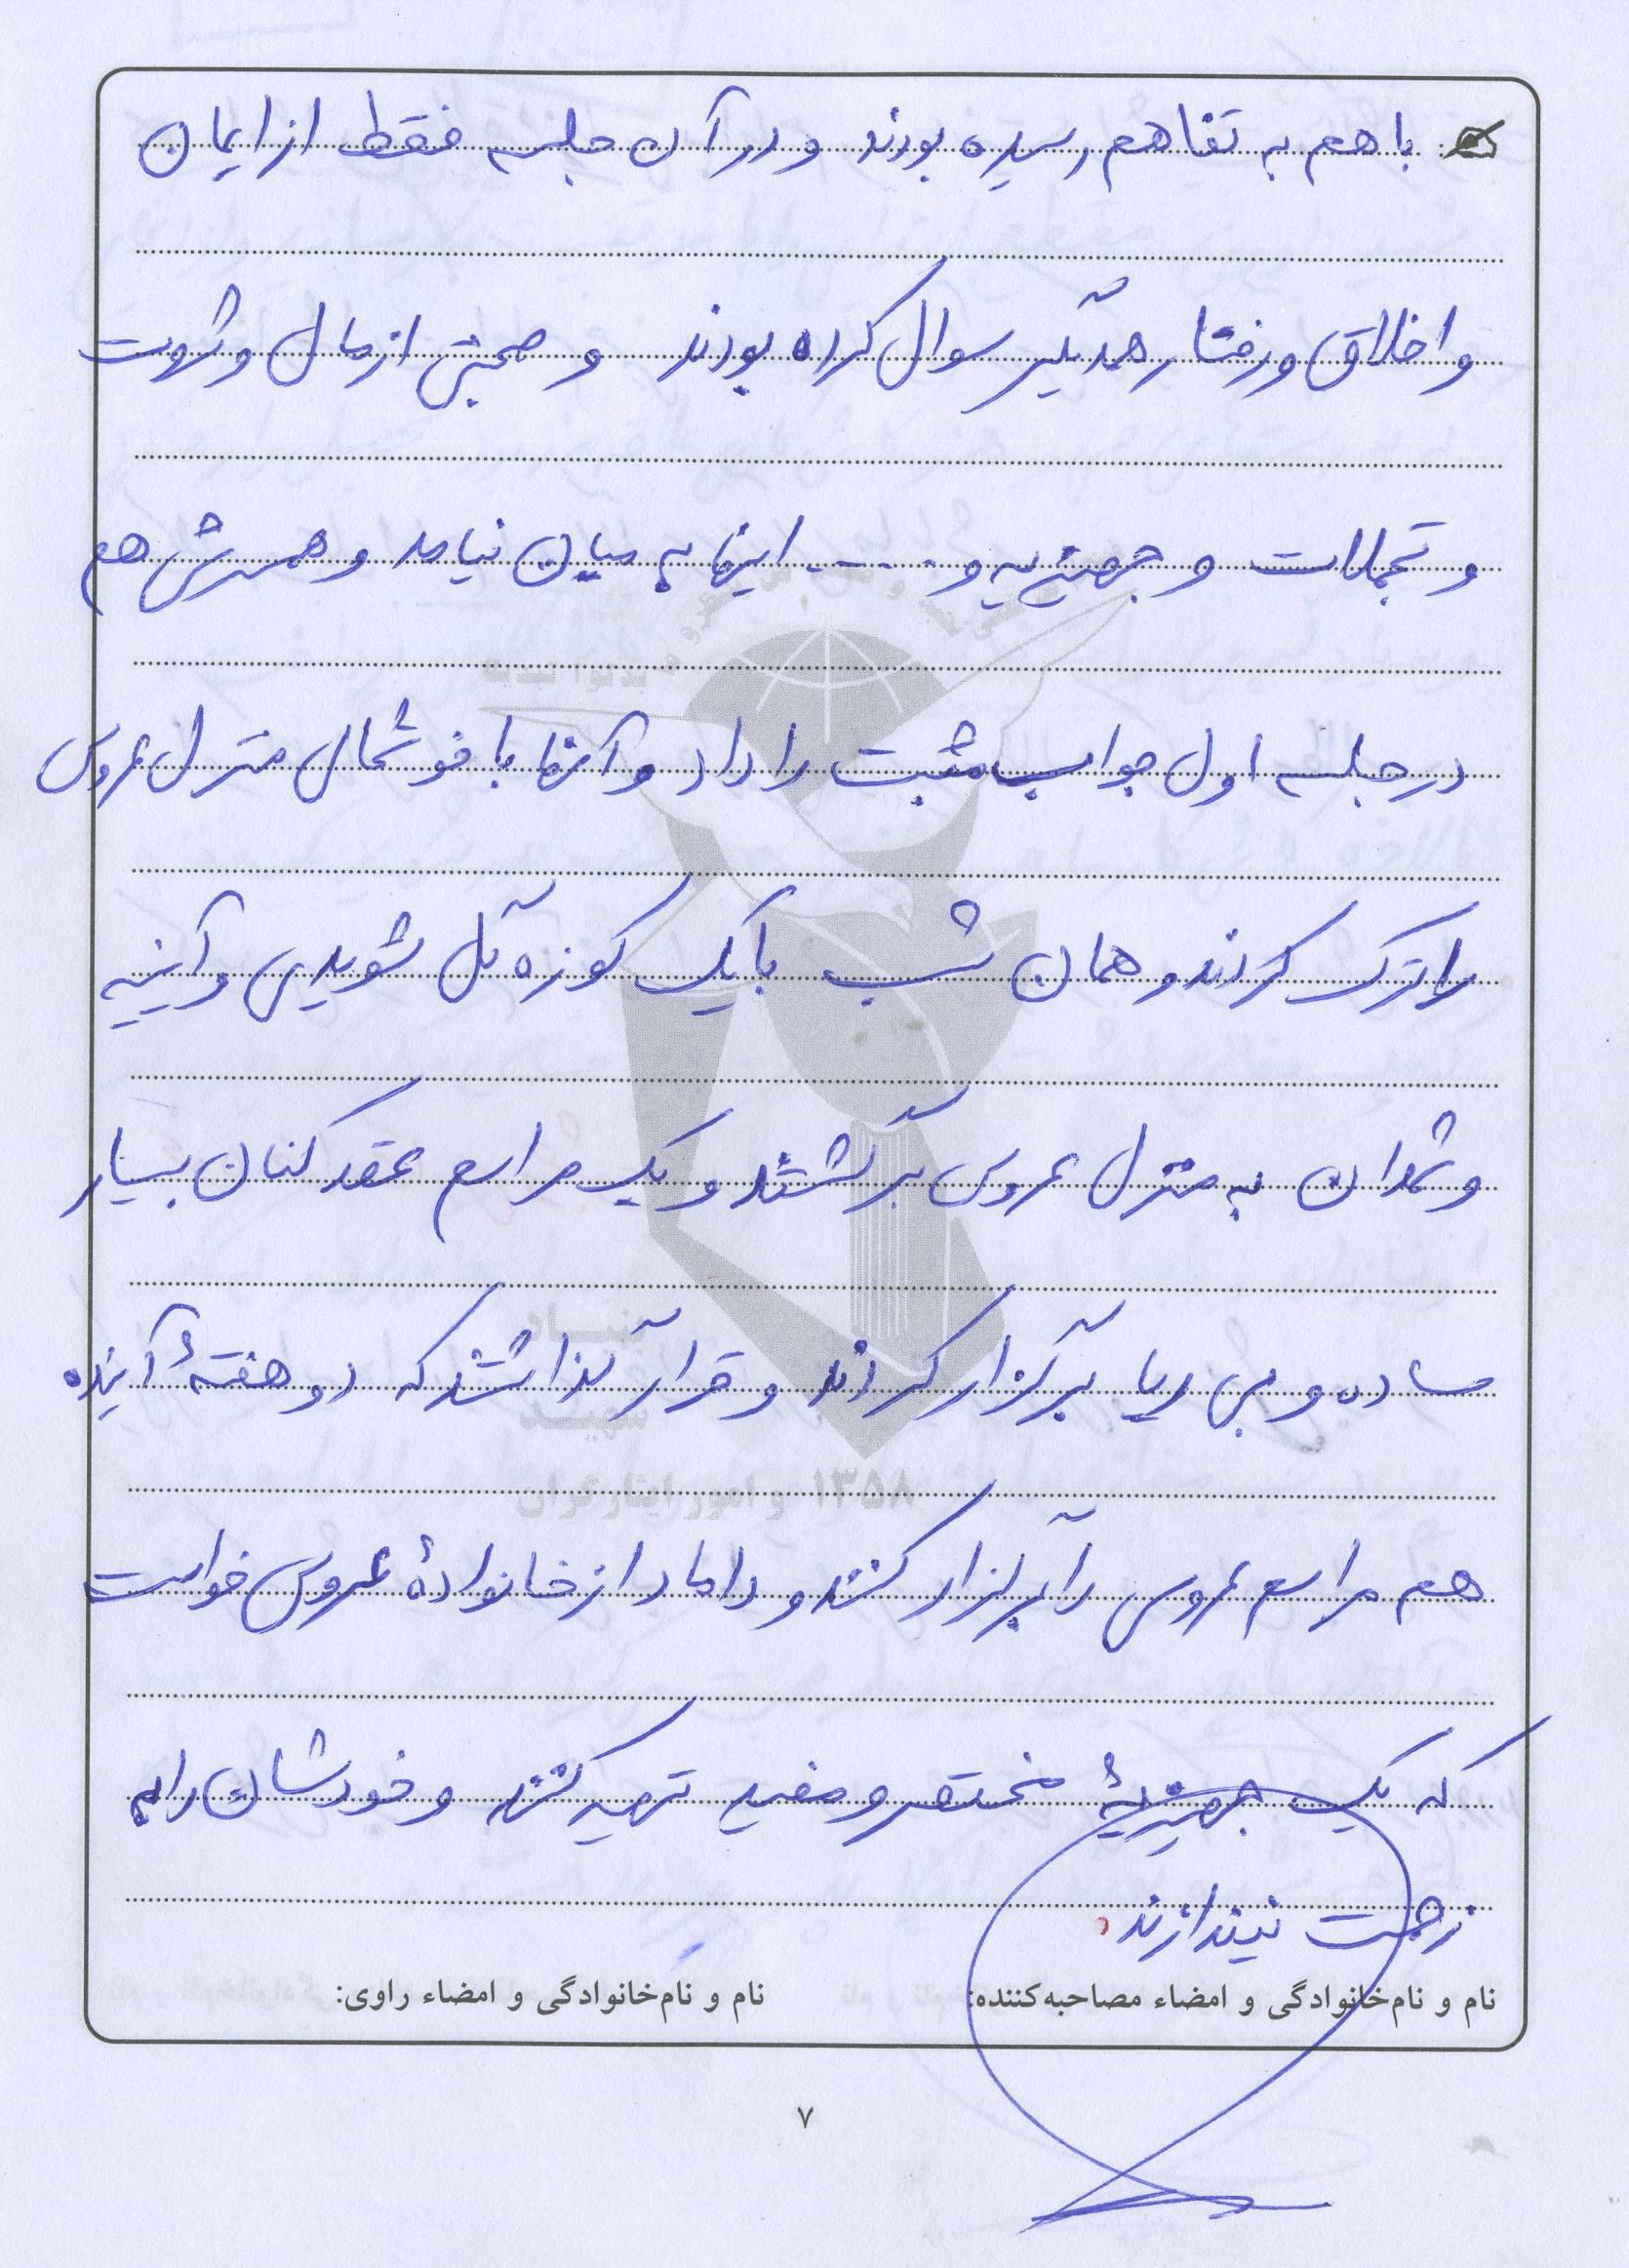 با هم به تفاهم رسیده بودند و در آن جلسه فقط از ایمان
و اخلاق و رفتار همدیگر سوال کرده بودند و صحبتی از مال و ثروت
و تجملات و جهزیه و ..... اینها به میان نیامد و همسرش هم
در جلسه اول جواب مثبت را داد و آنها با خوشحالی منزل عروس
را ترک کردند و همان شب با یک کوزه گل شویدی و آینیه
و شمدان به منزل عروس برگشتند و یک مراسم عقد کنان بسیار
ساده و بی ریا برگزار کردند و قرار گذاشتند که دو هفتهٔ آینده
هم مراسم عروسی را برگزار کنند و داماد از خانوادهٔ عروس خواست
که یک جهیزیهٔ مختصر و مفید تهیه کنند و خودشان را به
زحمت نیندازند.
نام و نام‌خانوادگی و امضاء مصاحبه‌کننده: نام و نام‌خانوادگی و امضاء راوی:
۷
بنیاد
شهید
و امور ایثارگران ۱۳۵۸